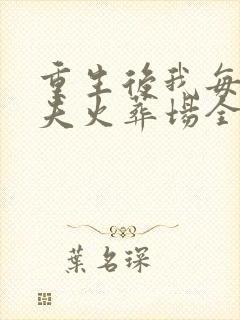 重生後我每
夫火葬場全
葉名琛